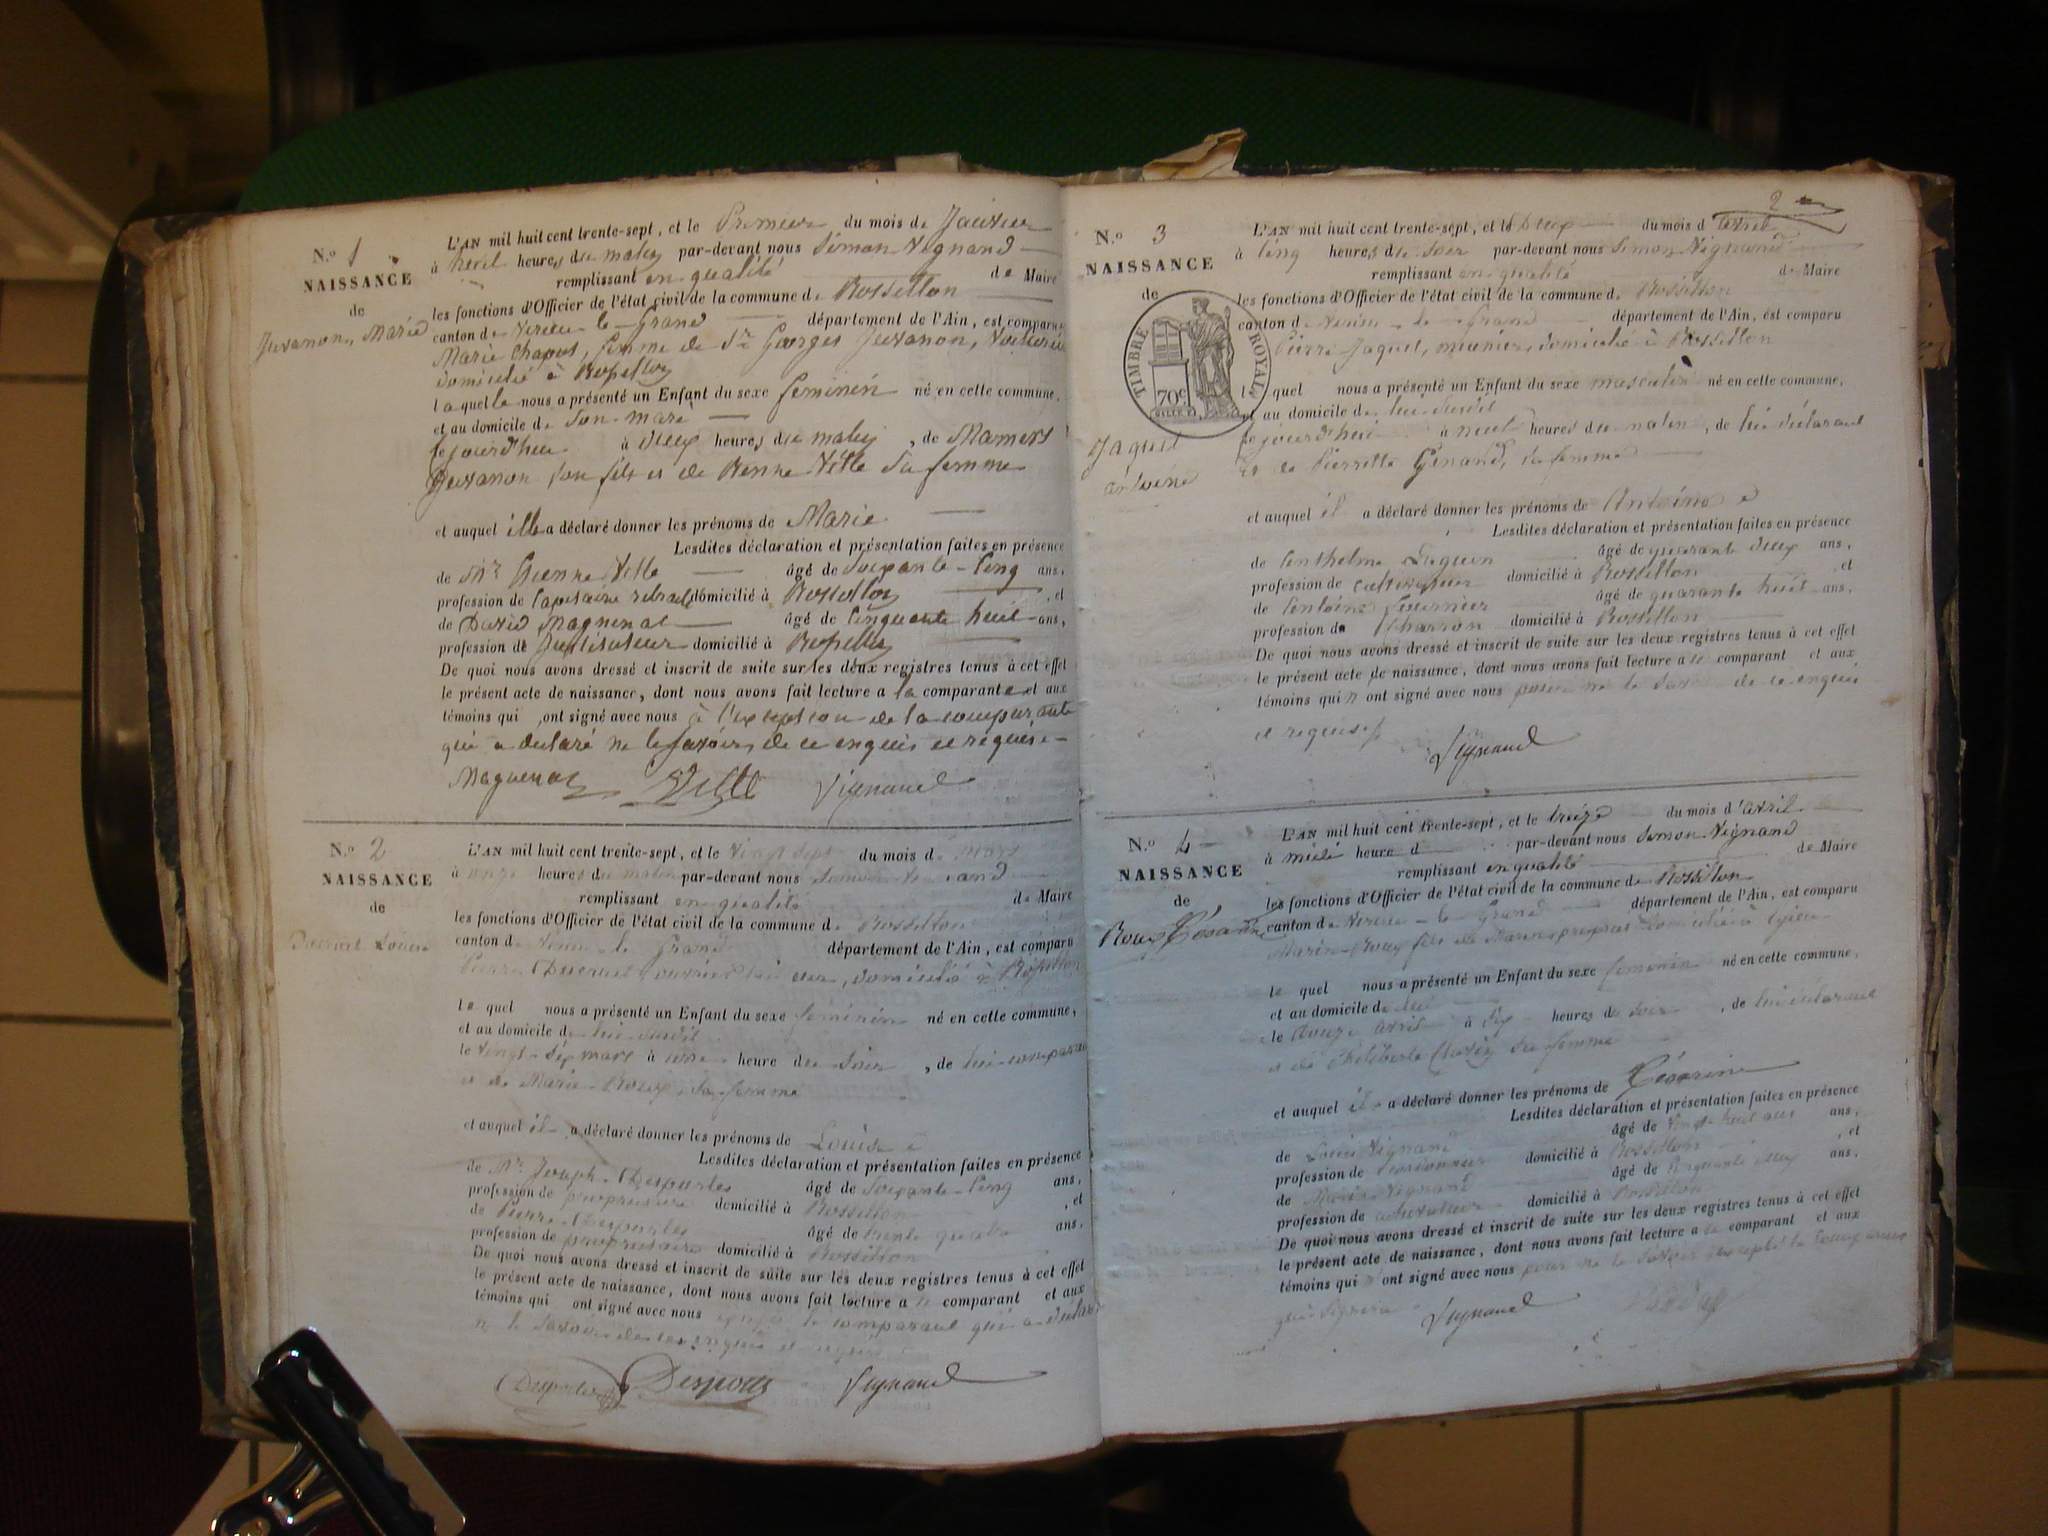 N.º 1
NAISSANCE
de
Juvanon, Marie
L'AN mil huit cent trente-sept, et le Premier du mois de Janvier
à heures du matin par-devant nous Simon Vignand
remplissant en qualité de Maire
les fonctions d'Officier de l'état civil de la commune de Rossillon
canton de Virieu-le-Grand département de l'Ain, est comparu
Marie Chapuis, femme de Sr Georges Juvanon, Voiturier
domicilié à Rossillon
laquelle nous a présenté un Enfant du sexe féminin né en cette commune,
et au domicile de son mari
ce jourd'hui à deux heures du matin, de Mamert
Juvanon son fils et de Ville sa femme
et auquel elle a déclaré donner les prénoms de Marie
Lesdites déclaration et présentation faites en présence
de Mr Ville âgé de Soixante-Cinq ans,
profession de Capitaine retraité domicilié à Rossillon, et
de David Magnenat âgé de Cinquante huit ans,
profession de domicilié à Rossillon
De quoi nous avons dressé et inscrit de suite sur les deux registres tenus à cet effet
le présent acte de naissance, dont nous avons fait lecture a la comparante et aux
témoins qui ont signé avec nous à l'exception de la comparante
qui a déclaré ne le savoir, de ce enquis et réquise
Magnenat Ville Vignand
N.º 2
NAISSANCE
de
Louise
L'AN mil huit cent trente-sept, et le vingt sept du mois de Mars
à onze heures du matin par-devant nous
remplissant en qualité de Maire
les fonctions d'Officier de l'état civil de la commune de Rossillon
canton de Virieu-le-Grand département de l'Ain, est comparu
Pierre domicilié à Rossillon
lequel nous a présenté un Enfant du sexe féminin né en cette commune,
et au domicile de lui susdit
le vingt-six mars à une heure du soir, de lui comparant
et de Marie Roux, sa femme
et auquel il a déclaré donner les prénoms de Louise
Lesdites déclaration et présentation faites en présence
de Mr Joseph Desportes âgé de Soixante-Cinq ans,
profession de propriétaire domicilié à Rossillon, et
de Pierre Desportes âgé de trente quatre ans,
profession de propriétaire domicilié à Rossillon
De quoi nous avons dressé et inscrit de suite sur les deux registres tenus à cet effet
le présent acte de naissance, dont nous avons fait lecture a le comparant et aux
témoins qui ont signé avec nous le comparant qui a déclaré
ne le savoir de ce enquis et requis
Desportes Desportes Vignand
2
N.º 3
NAISSANCE
de
TIMBRE ROYAL
70c
Jaquet
Antoine
L'AN mil huit cent trente-sept, et le Deux du mois d'avril
à Cinq heures du soir par-devant nous Simon Vignand
remplissant en qualité de Maire
les fonctions d'Officier de l'état civil de la commune de Rossillon
canton de Virieu-le-Grand département de l'Ain, est comparu
Pierre Jaquet, meunier, domicilié à Rossillon
lequel nous a présenté un Enfant du sexe masculin né en cette commune,
et au domicile de lui susdit
ce jourd'hui à neuf heures du matin, de lui déclarant
et de Pierrette Genand, sa femme
et auquel il a déclaré donner les prénoms de Antoine
Lesdites déclaration et présentation faites en présence
de Anthelme âgé de quarante deux ans,
profession de cultivateur domicilié à Rossillon, et
de Antoine Fournier âgé de quarante huit ans,
profession de Charron domicilié à Rossillon
De quoi nous avons dressé et inscrit de suite sur les deux registres tenus à cet effet
le présent acte de naissance, dont nous avons fait lecture a le comparant et aux
témoins qui n'ont signé avec nous pour ne le savoir de ce enquis
et requis
Vignand
N.º 4
NAISSANCE
de
Roux Césarine
L'AN mil huit cent trente-sept, et le treize du mois d'avril
à midi heure d par-devant nous Simon Vignand
remplissant en qualité de Maire
les fonctions d'Officier de l'état civil de la commune de Rossillon
canton de Virieu-le-Grand département de l'Ain, est comparu
Marin Roux fils de Marin domicilié à
lequel nous a présenté un Enfant du sexe féminin né en cette commune,
et au domicile de lui
le douze avril à six heures du soir, de lui déclarant
et de Philiberte sa femme
et auquel il a déclaré donner les prénoms de Césarine
Lesdites déclaration et présentation faites en présence
de Louis Vignand âgé de vingt-huit ans ans,
profession de cordonnier domicilié à Rossillon, et
de Vignand âgé de Cinquante deux ans,
profession de domicilié à Rossillon
De quoi nous avons dressé et inscrit de suite sur les deux registres tenus à cet effet
le présent acte de naissance, dont nous avons fait lecture a le comparant et aux
témoins qui n'ont signé avec nous pour ne le savoir excepté le comparant
qui signera
Vignand